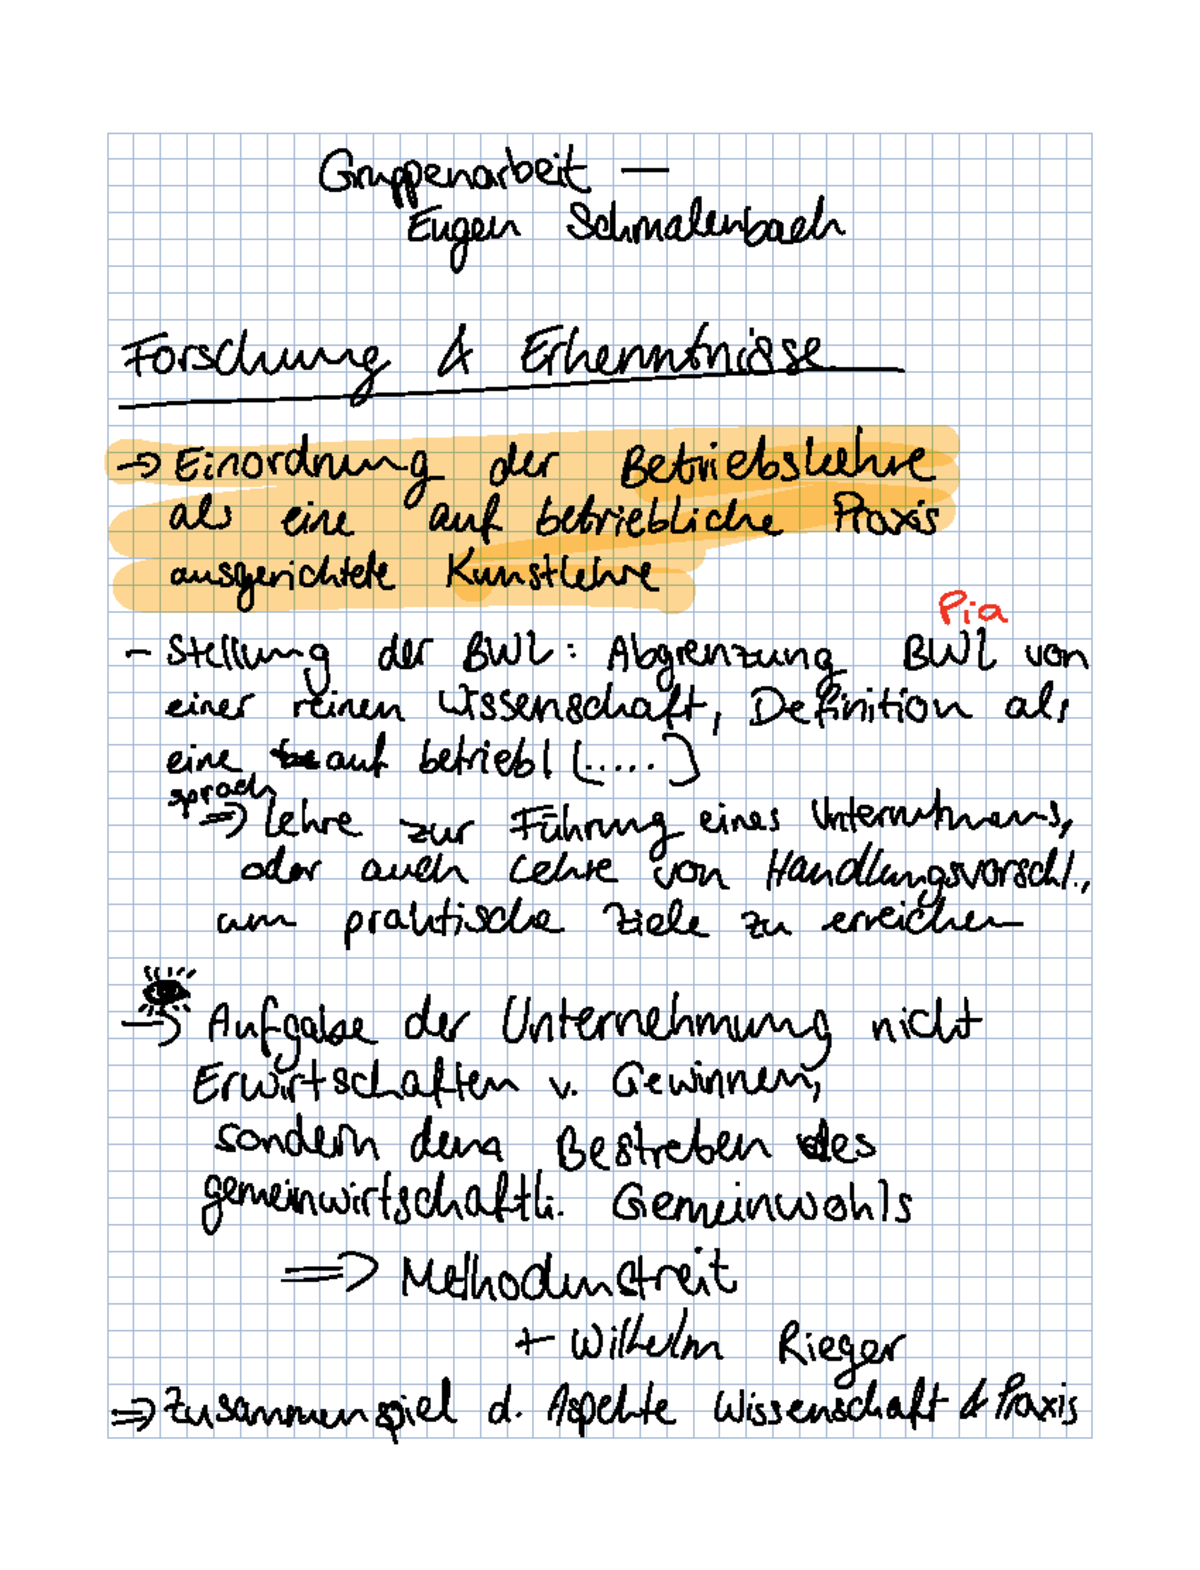 Gruppenarbeit —
Eugen Schmalenbach
Forschung & Erkenntnisse
→ Einordnung der Betriebslehre
als eine auf betriebliche Praxis
ausgerichtete Kunstlehre
Pia
- Stellung der BWL: Abgrenzung BWL von
einer reinen Wissenschaft, Definition als
eine auf betriebl [.....]
sprach
⇒ Lehre zur Führung eines Unternehmens,
oder auch Lehre von Handlungsvorschl.,
um praktische Ziele zu erreichen
→ Aufgabe der Unternehmung nicht
Erwirtschaften v. Gewinnen,
sondern dem Bestreben des
gemeinwirtschaftli. Gemeinwohls
⇒ Methodenstreit
+ Wilhelm Rieger
⇒ Zusammenspiel d. Aspekte Wissenschaft & Praxis